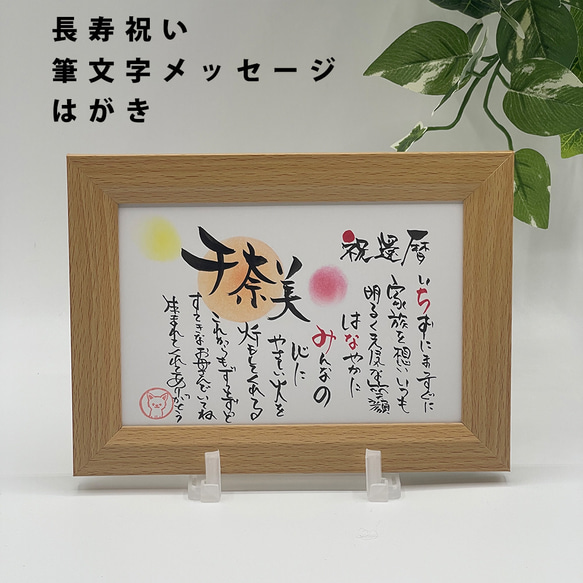 長寿祝い
筆文字メッセージ
はがき
祝還暦
千奈美
いちずにまっすぐに
家族を想いいつも
明るくえがおな笑顔
はなやかに
みんなの
心に
やさしい火を
灯もしてくれる
これからもずっとずっと
すてきなお母さんでいてね
産まれてくれてありがとう